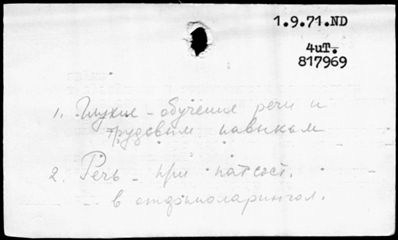 1.9.71.ND
4чТ.
817969
1. Глухие - обучение речи и
трудовым навыкам
2. Речь - при пат. сост.
в отоларингол.